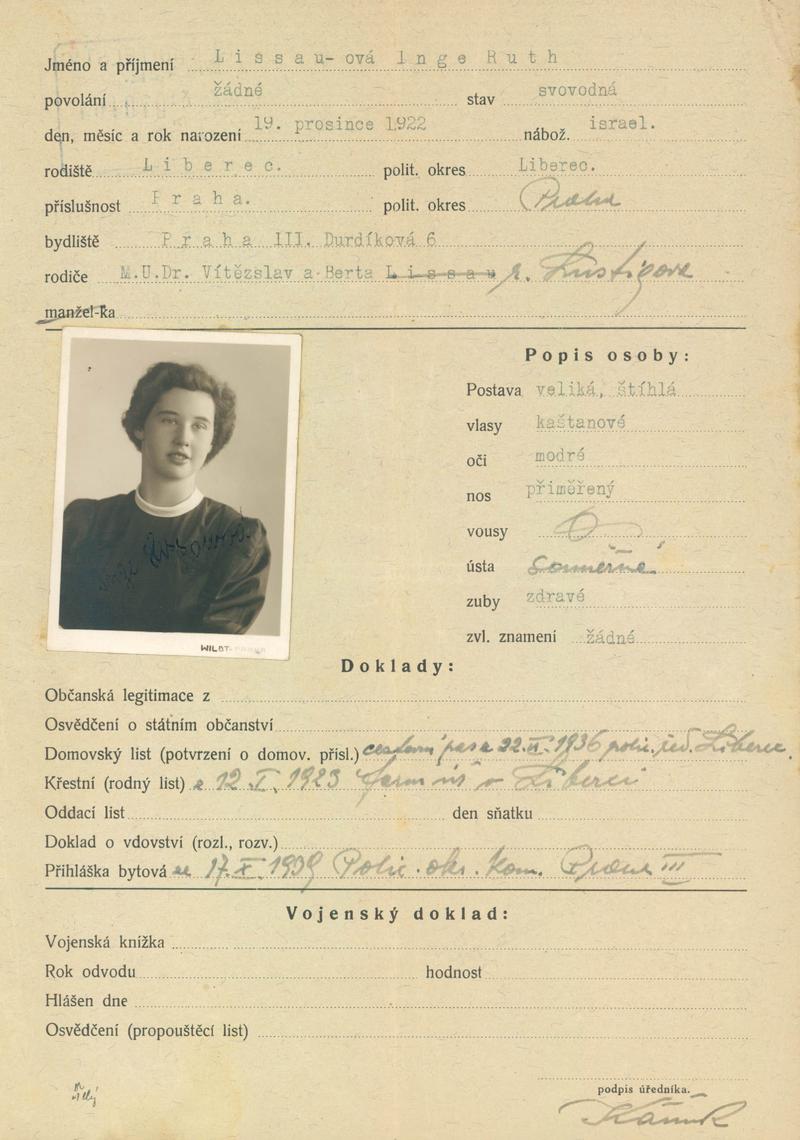 Jméno a příjmení L i s s a u- ová I n g e R u t h
povolání žádné stav svovodná
den, měsíc a rok narození 19. prosince 1922 nábož. israel.
rodiště L i b e r e c. polit. okres Liberec.
příslušnost P r a h a. polit. okres Praha
bydliště P r a h a III. Durdíková 6
rodiče M.U.Dr. Vítězslav a Berta L i s s a u r. Lustigova
manžel-ka
Popis osoby:
Postava veliká, štíhlá
vlasy kaštanové
oči modré
nos přiměřený
vousy
ústa souměrné
zuby zdravé
zvl. znamení žádné
WILDT
Doklady:
Občanská legitimace z
Osvědčení o státním občanství
Domovský list (potvrzení o domov. přísl.) cestovní pas z 22.II.1936 polic. řed. Liberec.
Křestní (rodný list) z 12.I.1923 v Liberci
Oddací list den sňatku
Doklad o vdovství (rozl., rozv.)
Přihláška bytová ze 17.X.1939 Polic. okr. kom. Praha III
Vojenský doklad:
Vojenská knížka
Rok odvodu hodnost
Hlášen dne
Osvědčení (propouštěcí list)
podpis úředníka.